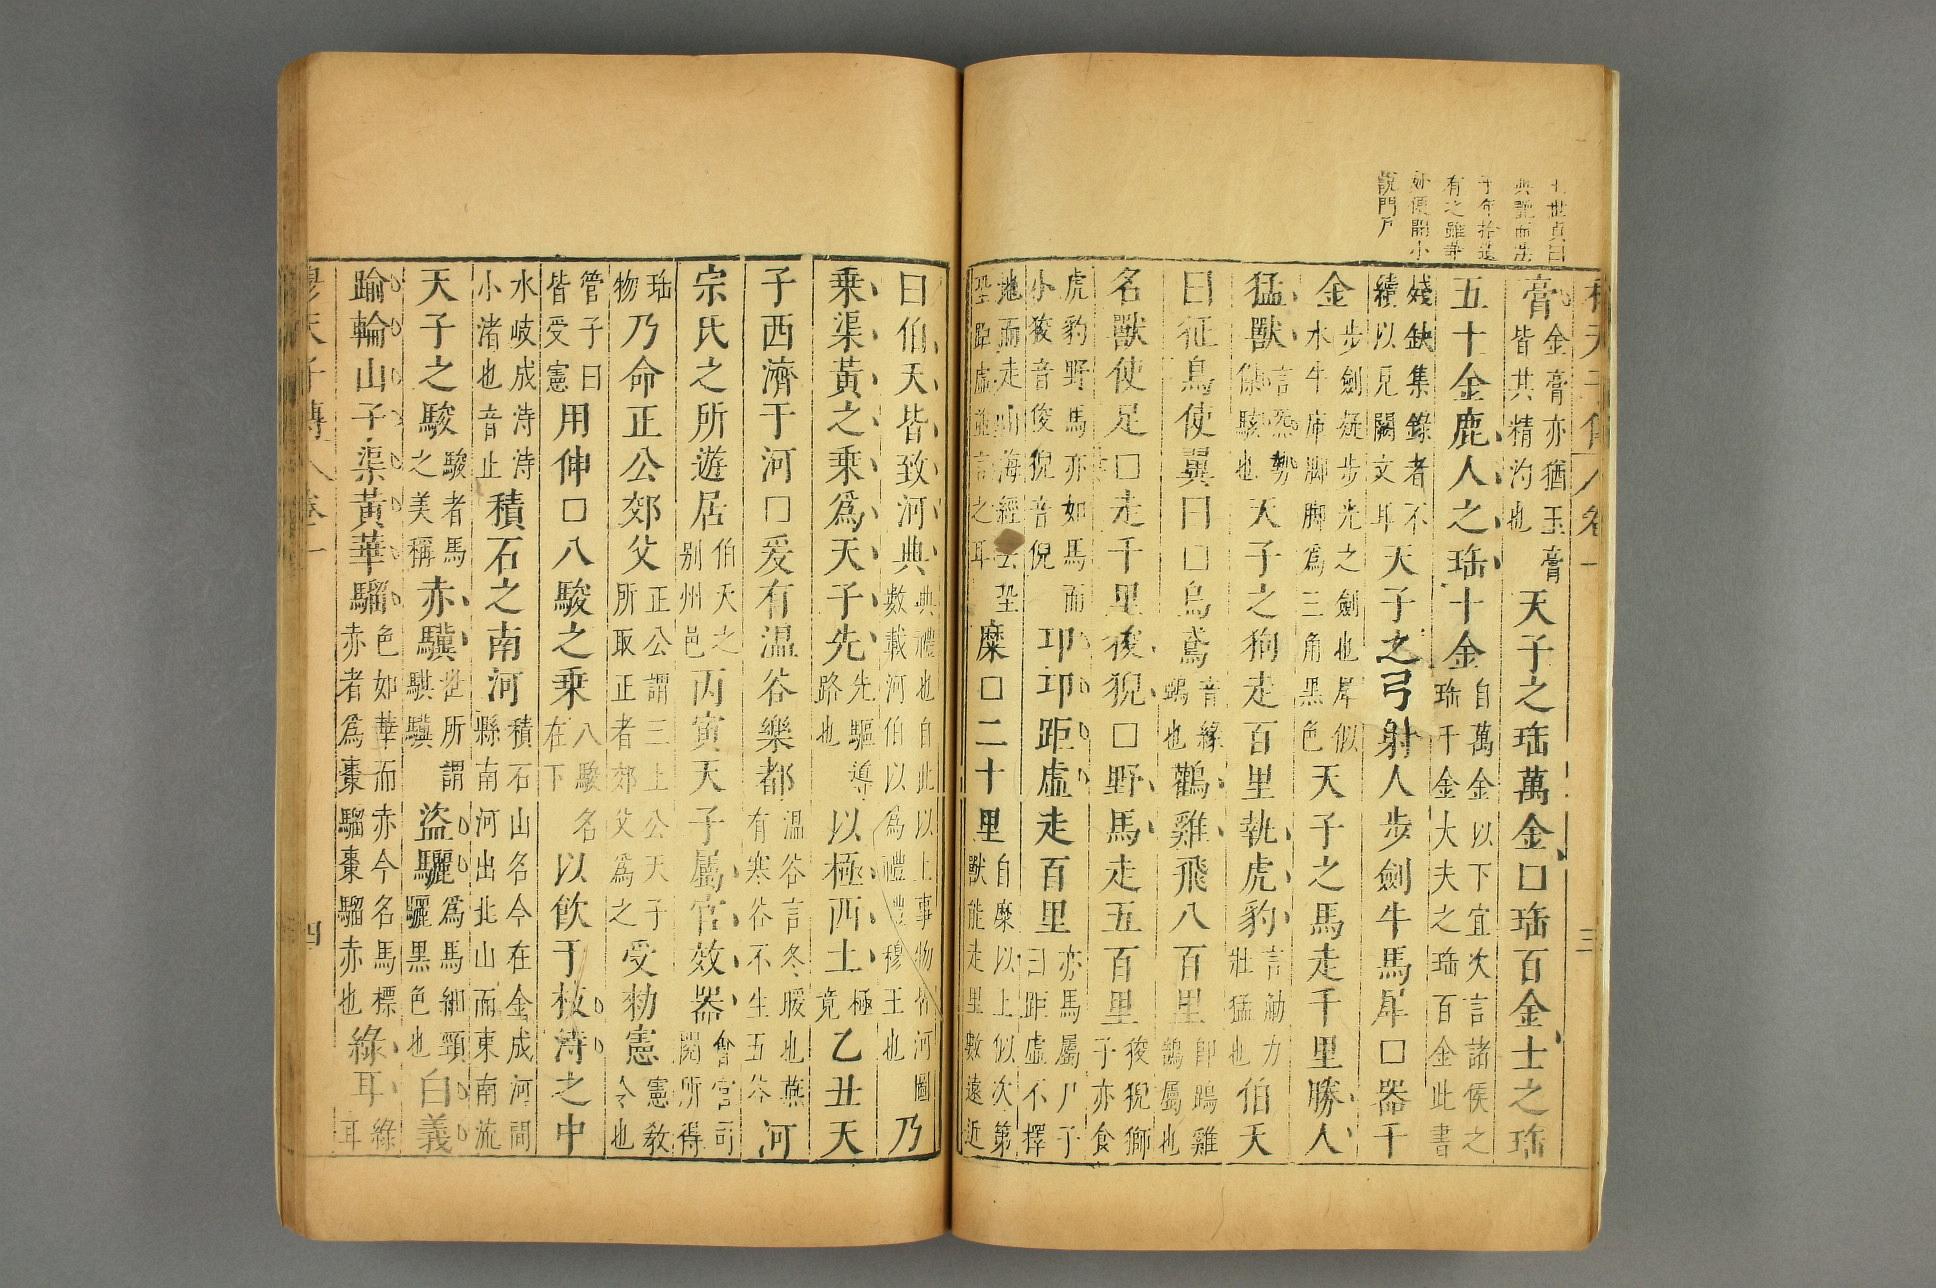 王世貞曰
典艷而法
子年拾遺
有之雖華
妙便開小
說門戶
穆天子傳 卷一 三
膏金膏亦猶玉膏皆其精汋也天子之珤萬金□珤百金士之珤
五十金鹿人之珤十金自萬金以下宜次言諸侯之珤千金大夫之珤百金此書
殘缺集錄者不續以見闕文耳天子之弓射人步劍牛馬犀□器千
金步劍疑步光之劍也犀似水牛庳脚脚爲三角黑色天子之馬走千里勝人
猛獸言炁勢傑駿也天子之狗走百里執虎豹言勈力壯猛也伯夭
曰征鳥使翼曰□烏鳶音緣鴟也鸛雞飛八百里卽鵾雞鵠屬也
名獸使足□走千里狻猊□□野馬走五百里狻猊獅子亦食
虎豹野馬亦如馬而小狻音俊猊音倪邛邛距虛走百里亦馬屬尸子曰距虛不擇
地而走山海經云蛩蛩距虛並言之耳麋□二十里自麋以上似次第獸能走里數遠近
曰伯夭皆致河典典禮也自此以上事物皆河圖數載河伯以爲禮禮穆王也乃
乘渠黃之乘爲天子先先驅導路也以極西土極竟乙丑天
子西濟于河□爰有温谷樂都温谷言冬暖也燕有寒谷不生五谷河
宗氏之所遊居伯夭之別州邑丙寅天子屬官效器會官司閱所得
珤物乃命正公郊父正公謂三上公天子所取正者郊父爲之受勑憲憲教令也
管子曰皆受憲用伸□八駿之乘八駿名在下以飲于枝洔之中
水岐成洔洔小渚也音止積石之南河積石山名今在金成河間縣南河出北山而東南流
天子之駿駿者馬之美稱赤驥世所謂騏驥盜驪爲馬細頸驪黑色也白義
踰輪山子渠黃華騮色如華而赤今名馬標赤者爲棗騮棗騮赤也綠耳綠耳
穆天子傳 卷一 四